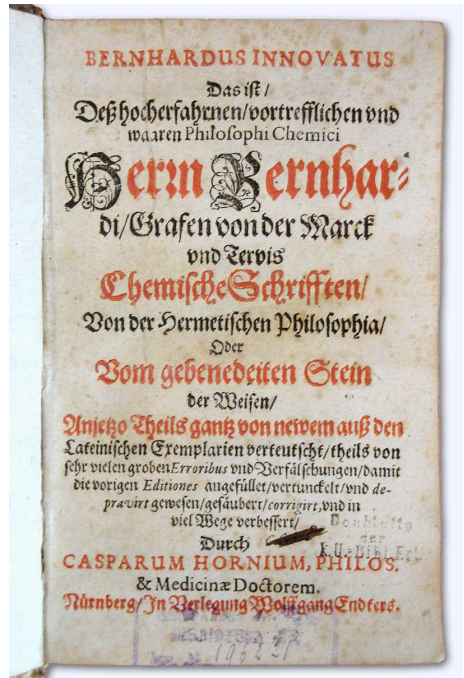 BERNHARDUS INNOVATUS
Das ist /
Deß hocherfahrnen / vortrefflichen vnd
waaren Philosophi Chemici
Herrn Bernhar-
di / Grafen von der Marck
vnd Tervis
Chemische Schrifften /
Von der Hermetischen Philosophia /
Oder
Vom gebenedeiten Stein
der Weisen /
Anjetzo Theils gantz von newem auß den
Lateinischen Exemplarien verteutscht / theils von
sehr vielen groben Erroribus vnd Verfälschungen / damit
die vorigen Editiones angefüllet / vertunckelt / vnd de-
pravirt gewesen / gesäubert / corrigirt, vnd in
viel Wege verbessert /
Doublette
der
Durch
K. U. Bibl. Erl.
CASPARUM HORNIUM, PHILOS.
& Medicinæ Doctorem.
Nürnberg / In Verlegung Wolffgang Endters.